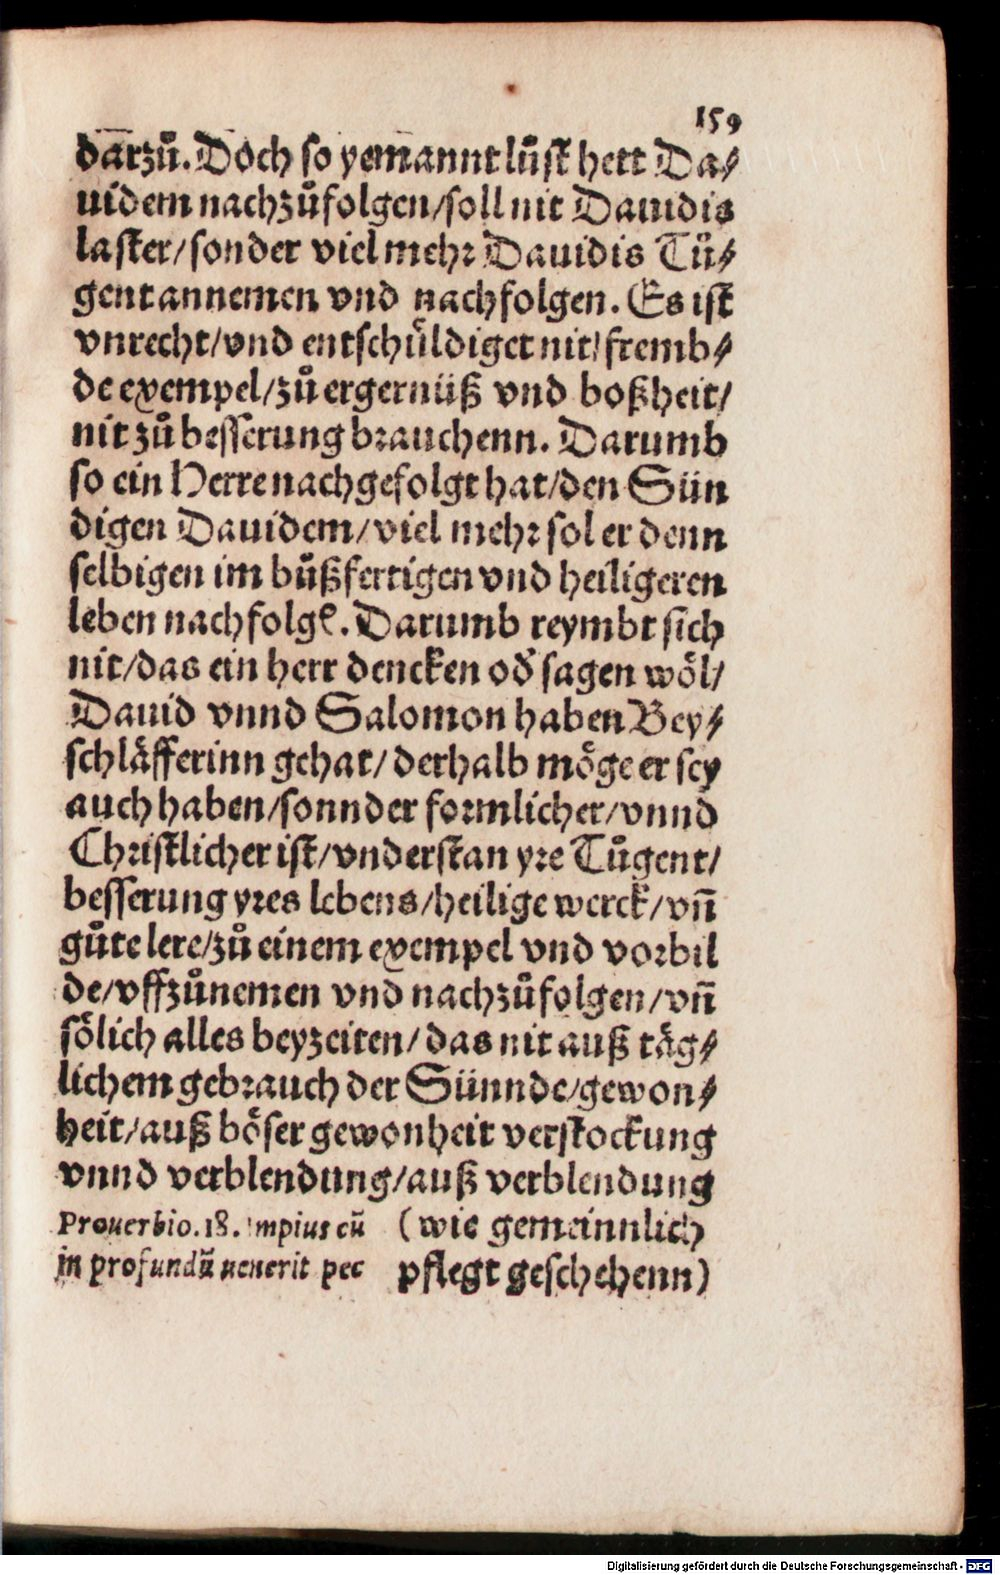 159
darzů. Doch so yemannt lůst hett Da⸗
uidem nachzůfolgen/soll nit Dauidis
laster/sonder viel mehr Dauidis Tů⸗
gent annemen vnd nachfolgen. Es ist
vnrecht/vnd entschůldiget nit/fremb⸗
de exempel/zů ergernüß vnd boßheit/
nit zů besserung brauchenn. Darumb
so ein Herre nachgefolgt hat/den Sün
digen Dauidem/viel mehr sol er denn
selbigen im bůßfertigen vnd heiligeren
leben nachfolgẽ. Darumb reymbt sich
nit/das ein herr dencken oď sagen wöl/
Dauid vnnd Salomon haben Bey⸗
schläfferinn gehat/derhalb möge er sey
auch haben/sonnder formlicher/vnnd
Christlicher ist/vnderstan yre Tůgent/
besserung yres lebens/heilige werck/vñ
gůte lere/zů einem exempel vnd vorbil
de/vffzůnemen vnd nachzůfolgen/vñ
sölich alles beyzeiten/das nit auß täg⸗
lichem gebrauch der Sünnde/gewon⸗
heit/auß böser gewonheit verstockung
vnnd verblendung/auß verblendung
Prouerbio.18. Impius cũ (wie gemeinnlich
in profundũ uenerit pec pflegt geschehenn)
Digitalisierung gefördert durch die Deutsche Forschungsgemeinschaft - DFG